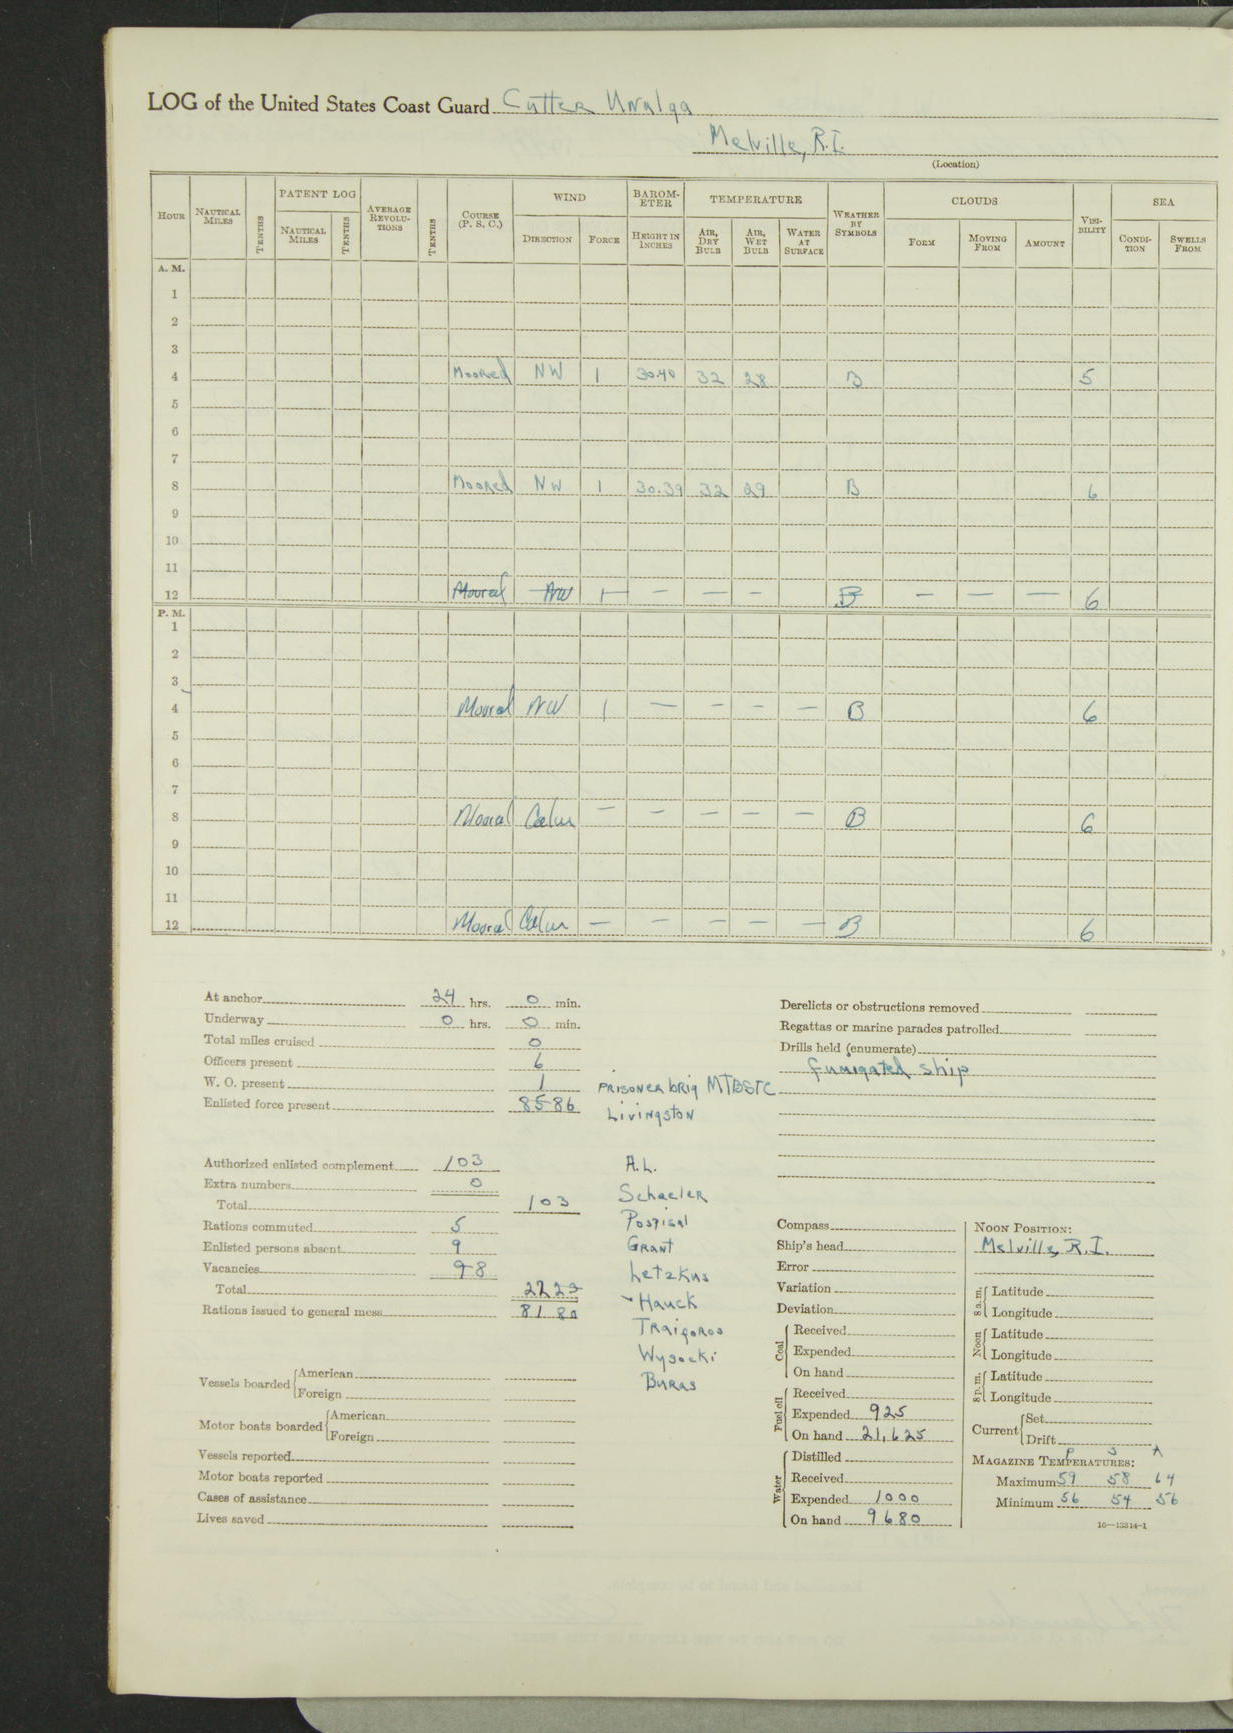 LOG of the United States Coast Guard Cutter Unalga
Melville, R.I.
(Location)
HOUR NAUTICAL MILES TENTHS PATENT LOG NAUTICAL MILES TENTHS AVERAGE REVOLUTIONS TENTHS COURSE (P. S. C.) WIND DIRECTION FORCE BAROMETER HEIGHT IN INCHES TEMPERATURE AIR, DRY BULB AIR, WET BULB WATER AT SURFACE WEATHER BY SYMBOLS CLOUDS FORM MOVING FROM AMOUNT VISIBILITY SEA CONDITION SWELLS FROM
A. M.
1
2
3
4 Moored NW 1 30.40 32 28 B 5
5
6
7
8 Moored NW 1 30.39 32 29 B 6
9
10
11
12 Moored NW 1 — — — B — — — 6
P. M.
1
2
3
4 Moored NW 1 — — — — B 6
5
6
7
8 Moored Calm — — — — — B 6
9
10
11
12 Moored Calm — — — — — B 6
At anchor 24 hrs. 0 min.
Underway 0 hrs. 0 min.
Total miles cruised 0
Officers present 6
W. O. present 1
Enlisted force present 85 86
Prisoner brig MTBSTC
Livingston
Authorized enlisted complement 103
Extra numbers 0
Total 103
Rations commuted 5
Enlisted persons absent 9
Vacancies 9 8
Total 22 23
Rations issued to general mess 81 80
A.L.
Schaeler
Pospisal
Grant
Letzkus
Hauck
Traigoros
Wysocki
Buras
Vessels boarded American
Foreign
Motor boats boarded American
Foreign
Vessels reported
Motor boats reported
Cases of assistance
Lives saved
Derelicts or obstructions removed
Regattas or marine parades patrolled
Drills held (enumerate)
fumigated ship
Compass
Ship's head
Error
Variation
Deviation
Coal Received
Expended
On hand
Fuel oil Received
Expended 925
On hand 21,625
Water Distilled
Received
Expended 1000
On hand 9680
NOON POSITION:
Melville, R.I.
8 a. m. Latitude
Longitude
Noon Latitude
Longitude
8 p. m. Latitude
Longitude
Current Set
Drift
P S A
MAGAZINE TEMPERATURES:
Maximum 59 58 64
Minimum 56 54 56
16—13314-1